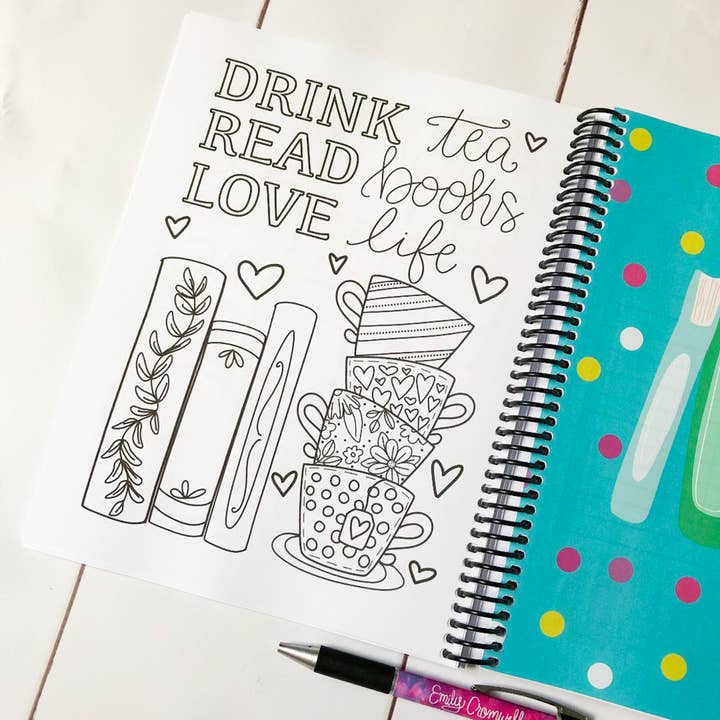 DRINK tea
READ books
LOVE life
Emily Cromwell